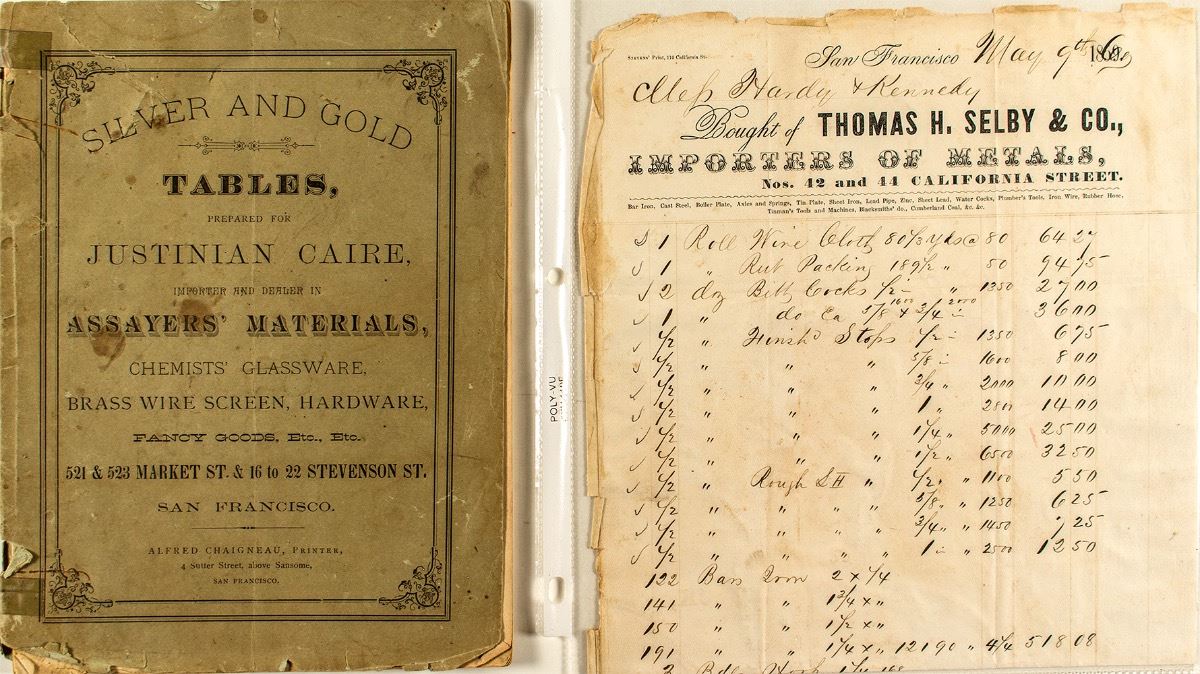 SILVER AND GOLD
TABLES,
PREPARED FOR
JUSTINIAN CAIRE,
IMPORTER AND DEALER IN
ASSAYERS' MATERIALS,
CHEMISTS' GLASSWARE,
BRASS WIRE SCREEN, HARDWARE,
FANCY GOODS, Etc., Etc.
521 & 523 MARKET ST. & 16 to 22 STEVENSON ST.
SAN FRANCISCO.
ALFRED CHAIGNEAU, PRINTER,
4 Sutter Street, above Sansome,
SAN FRANCISCO.
POLY-VU
STEVENS' Print, California St.
San Francisco May 9th 186
Mess Hardy & Kennedy
Bought of THOMAS H. SELBY & CO.,
IMPORTERS OF METALS,
Nos. 42 and 44 CALIFORNIA STREET.
Bar Iron, Cast Steel, Boiler Plate, Axles and Springs, Tin Plate, Sheet Iron, Lead Pipe, Zinc, Sheet Lead, Water Cocks, Plumber's Tools, Iron Wire, Rubber Hose,
Tinman's Tools and Machines, Blacksmiths' do., Cumberland Coal, &c. &c.
1 Roll Wire Cloth 80 1/3 yds @ 80 64 27
1 " Rub Packing 189 1/2 " 50 94 75
2 doz Bitty Cocks 1/2 " 1350 27 00
1 " do Ea 5/8 1600 & 3/4 2000 36 00
1/2 " Finishd Stops 1/2 1350 6 75
1/2 " " " 5/8 1600 8 00
1/2 " " " 3/4 " 2000 10 00
1/2 " " " 1 " 2800 14 00
1/2 " " " 1 1/4 " 5000 25 00
1/2 " " " 1 1/2 " 6500 32 50
1/2 " Rough SH " 1/2 " " 1100 5 50
1/2 " " " " 5/8 " " 1250 6 25
1/2 " " " " 3/4 " " 1450 7 25
1/2 " " " " 1 " 2500 12 50
122 Bars Iron 2 x 1/4
141 " " 1 3/4 x "
150 " " 1 1/2 x "
191 " " 1 1/4 x " 12190 " 4 1/4 518 08
Bdl